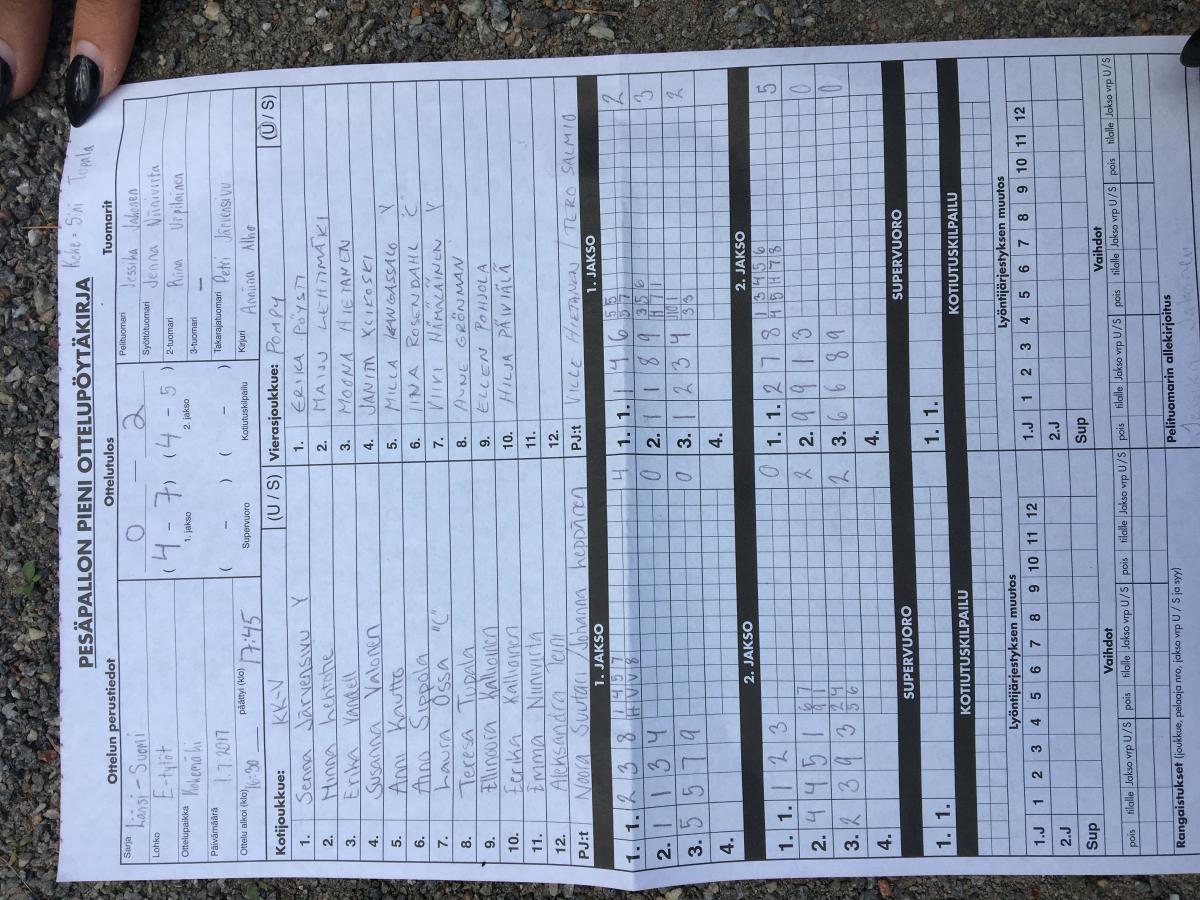 PESÄPALLON PIENI OTTELUPÖYTÄKIRJA
Keke = Sini Tupala
Ottelun perustiedot
Sarja Länsi-Suomi
Lohko E-tytöt
Ottelupaikka Kokemäki
Päivämäärä 1.7.2017
Ottelu alkoi (klo) 16:30 päättyi (klo) 17:45
Ottelutulos
0 — 2
( 4 - 7 ) ( 4 - 5 )
1. jakso 2. jakso
( - ) ( - )
Supervuoro Kotiutuskilpailu
Tuomarit
Pelituomari Jessika Jakonen
Syöttötuomari Jenna Niinivirta
2-tuomari Riina Urpilainen
3-tuomari —
Takarajatuomari Petri Järvensivu
Kirjuri Anniina Alho
Kotijoukkue: KK-V (U / S)
1. Senna Järvensivu Y
2. Minna Lehtone
3. Erika Vandell
4. Susanna Valionen
5. Anni Knutto
6. Anna Sippola
7. Laura Ossa "C"
8. Teresa Tupala
9. Ellinoora Kallionen
10. Eerika Kallionen
11. Emma Niinivirta
12. Aleksandra Telli
PJ:t Noora Suutari / Johanna heppänen
Vierasjoukkue: POMPY (U / S)
1. ERIKA PÖYSTI
2. MAINI LEHTIMÄKI
3. MOONA HIETANEN
4. JANITA XIKOSKI
5. MILLA KANGASSALO Y
6. IINA ROSENDAHL "C"
7. VIIVI HÄMÄLÄINEN Y
8. AUNE GRÖNMAN
9. ELLEN POHJOLA
10. HILJA PÄIVIÄLÄ
11.
12.
PJ:t VILLE HIETANEN / TERO SALMIO
1. JAKSO
1. 1. 2 3 8 4
2. 1 1 3 4 0
3. 5 5 7 9 0
4.
1. JAKSO
1. 1. 1 4 6 2
2. 1 1 8 9 3
3. 1 2 3 4 2
4.
2. JAKSO
1. 1. 1 2 3 0
2. 4 4 5 1 2
3. 2 3 9 3 2
4.
2. JAKSO
1. 1. 2 7 8 5
2. 9 9 1 3 0
3. 6 6 8 9 0
4.
SUPERVUORO
1. 1.
SUPERVUORO
1. 1.
KOTIUTUSKILPAILU
KOTIUTUSKILPAILU
Lyöntijärjestyksen muutos
1.J 1 2 3 4 5 6 7 8 9 10 11 12
2.J
Sup
Lyöntijärjestyksen muutos
1.J 1 2 3 4 5 6 7 8 9 10 11 12
2.J
Sup
Vaihdot
pois tilalle Jakso vrp U / S pois tilalle Jakso vrp U / S pois tilalle Jakso vrp U / S
Vaihdot
pois tilalle Jakso vrp U / S pois tilalle Jakso vrp U / S pois tilalle Jakso vrp U / S
Rangaistukset (joukkue, pelaaja nro, jakso vrp U / S ja syy)
Pelituomarin allekirjoitus